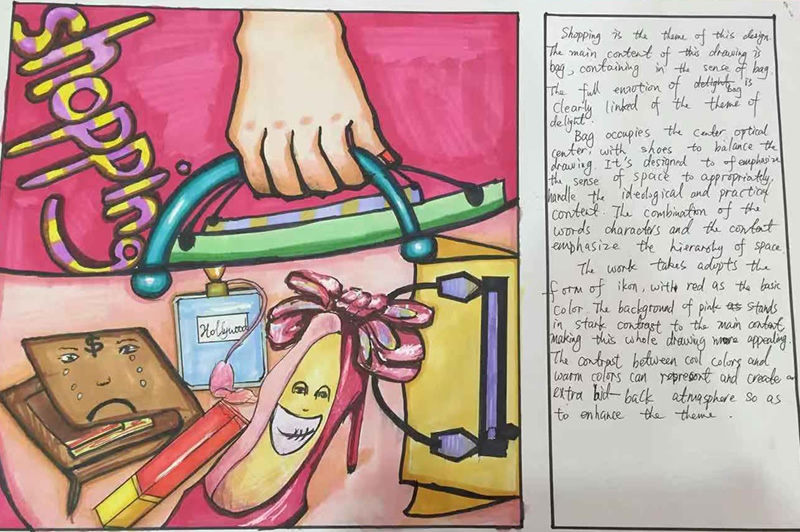 Shopping
Hollywood
Shopping is the theme of this design.
The main content of this drawing is
bag, containing in the sense of bag.
The full emotion of delight bag is
clearly linked of the theme of
delight.
Bag occupies the center optical
center, with shoes to balance the
drawing. It's designed to of emphasize
the sense of space to appropriately
handle the ideological and practical
content. The combination of the
words characters and the content
emphasize the hierarchy of space.
The work takes adopts the
form of ikon, with red as the basic
color. The background of pink as stands
in stark contrast to the main content,
making this whole drawing more appealing.
The contrast between cool colors and
warm colors can represent and create
extra laid-back atmosphere so as
to enhance the theme.
$